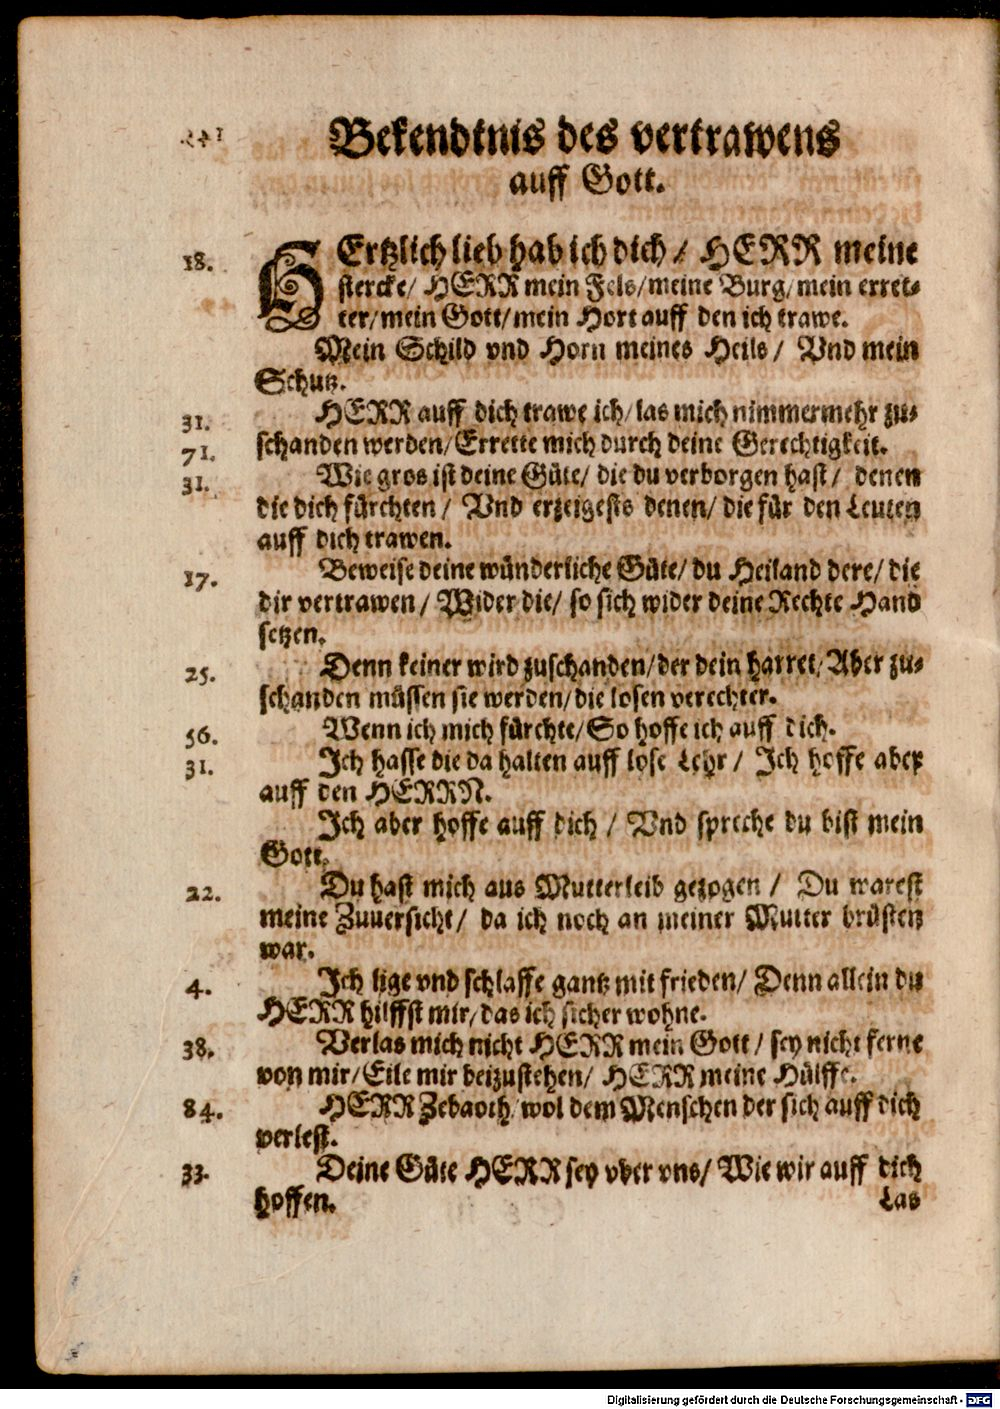 Bekendtnis des vertrawens
auff Gott.
18. HErtzlich lieb hab ich dich / HERR meine
stercke / HERR mein Fels / meine Burg / mein erret-
ter / mein Gott / mein Hort auff den ich trawe.
Mein Schild vnd Horn meines Heils / Vnd mein
Schutz.
31. HERR auff dich trawe ich / las mich nimmermehr zu-
71. schanden werden / Errette mich durch deine Gerechtigkeit.
31. Wie gros ist deine Güte / die du verborgen hast / denen
die dich fürchten / Vnd erzeigests denen / die für den Leuten
auff dich trawen.
17. Beweise deine wünderliche Güte / du Heiland dere / die
dir vertrawen / Wider die / so sich wider deine Rechte Hand
setzen.
25. Denn keiner wird zuschanden / der dein harret / Aber zu-
schanden müssen sie werden / die losen verechter.
56. Wenn ich mich fürchte / So hoffe ich auff dich.
31. Ich hasse die da halten auff lose Lehr / Ich hoffe aber
auff den HERRN.
Ich aber hoffe auff dich / Vnd spreche du bist mein
Gott.
22. Du hast mich aus Mutterleib gezogen / Du warest
meine Zuuersicht / da ich noch an meiner Mutter brüsten
war.
4. Ich lige vnd schlaffe gantz mit frieden / Denn allein du
HERR hilffst mir / das ich sicher wohne.
38. Verlas mich nicht HERR mein Gott / sey nicht ferne
von mir / Eile mir beizustehen / HERR meine Hülffe.
84. HERR Zebaoth / wol dem Menschen der sich auff dich
verlest.
33. Deine Güte HERR sey vber vns / Wie wir auff dich
hoffen. Las
Digitalisierung gefördert durch die Deutsche Forschungsgemeinschaft - DFG